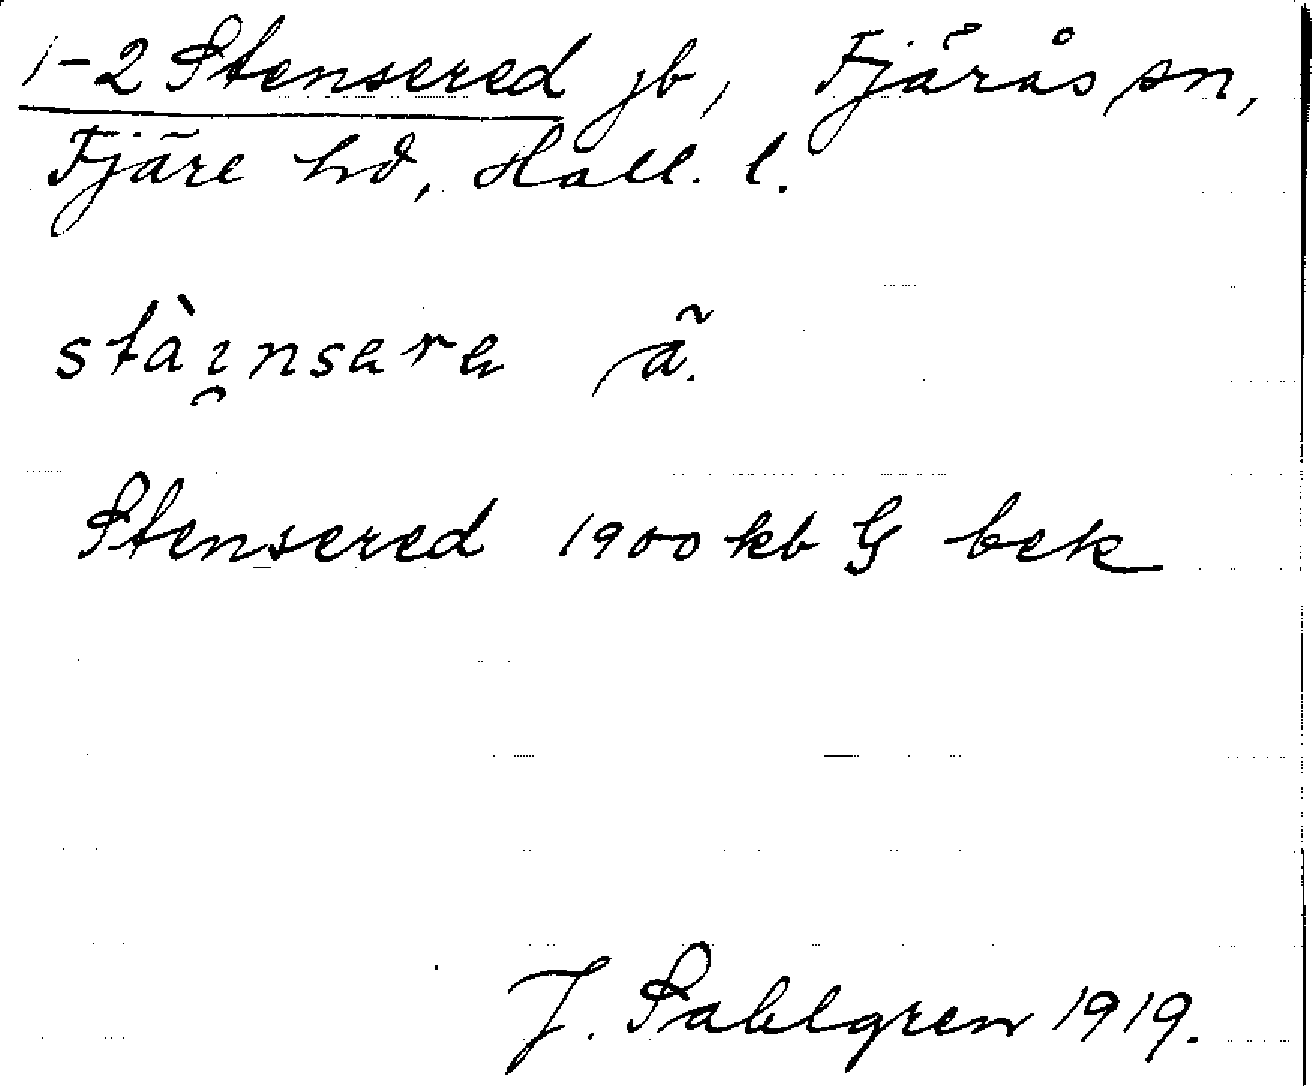 1-2 Stensered jb, Fjärås sn,
Fjäre hd, Hall. l.
stàɪ̯nsara ã.
Stensered 1900 kb G bek
J. Sahlgren 1919.